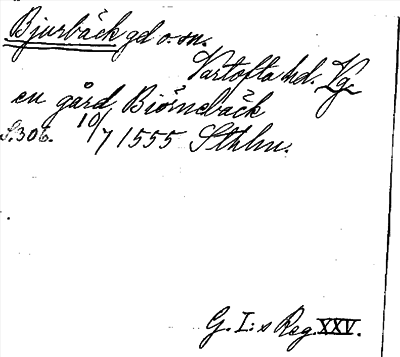 Bjurbäck gd o. sn.
Vartofta hd. Vg.
en gård Biörnebäck
S. 306. 10/7 1555 Sthlm.
G. I:s Reg. XXV.